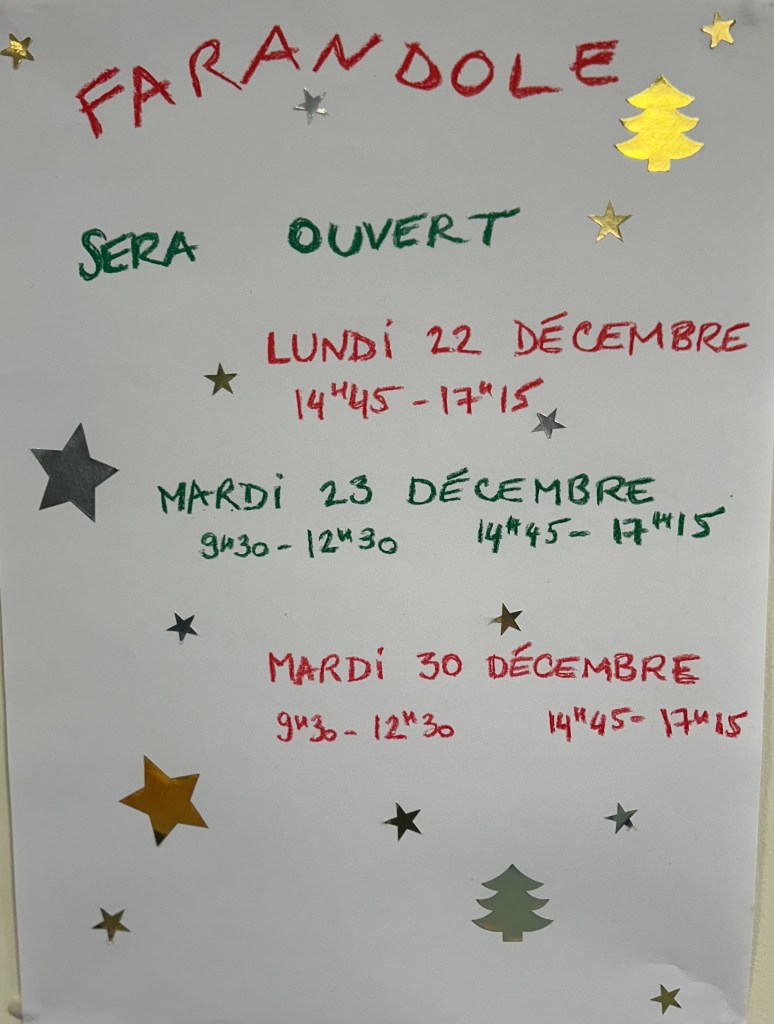 FARANDOLE
SERA OUVERT
LUNDi 22 DÉCEMBRE
14H45 - 17H15
MARDi 23 DÉCEMBRE
9H30 - 12H30 14H45 - 17H15
MARDi 30 DÉCEMBRE
9H30 - 12H30 14H45 - 17H15